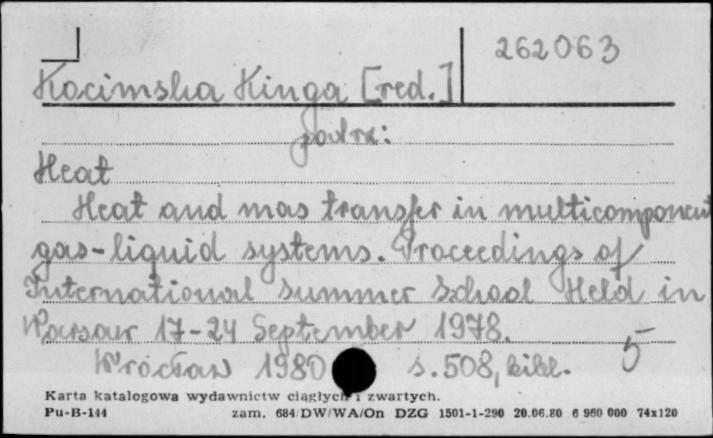 262063
Kocimska Kinga [red.]
patrz:
Heat
Heat and mas transfer in multicomponent
gas-liquid systems. Proceedings of
International summer school Held in
Warsaw 17-24 September 1978.
Wrocław 1980 s. 508, bibl. 5
Karta katalogowa wydawnictw ciągłych i zwartych.
Pu-B-144 zam. 684/DW/WA/On DZG 1501-1-290 20.06.80 6 960 000 74x120